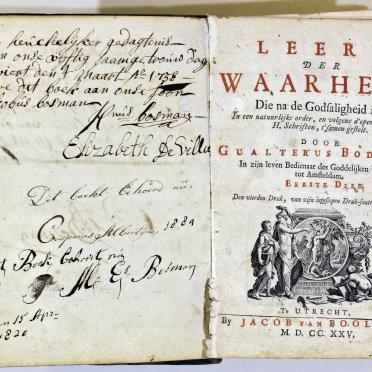 heuchelijker gedagtenis
onse vijftig jaarige trouw dag
den 4 maart Aº 1758
dit boek aan onse soon
cobus bosman
Bosman
Elizabeth De Villi
Dit boekt behoord
1884
Boek behoort
Bosman
15 Apr
1820
LEER
DER
WAARHE
Die na de Godsaligheid i
In een natuurlyke order, en volgens d'ope
H. Schriften, t'samen gestelt.
DOOR
GUALTERUS BOD
In zijn leven Bedienaar des Goddelijken
tot Amsteldam.
EERSTE DEEL
Den vierden Druk, van zijn ingeslopen Druk-fout
Te UTRECHT,
By JACOB VAN POOL
M. D. CC. XXV.